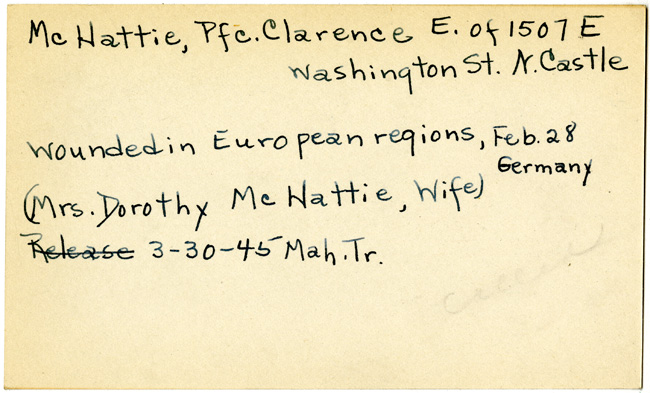 Mc Hattie, Pfc. Clarence E. of 1507 E
Washington St. N. Castle
Wounded in European regions, Feb. 28
Germany
(Mrs. Dorothy Mc Hattie, Wife)
Release 3-30-45 Mah. Tr.